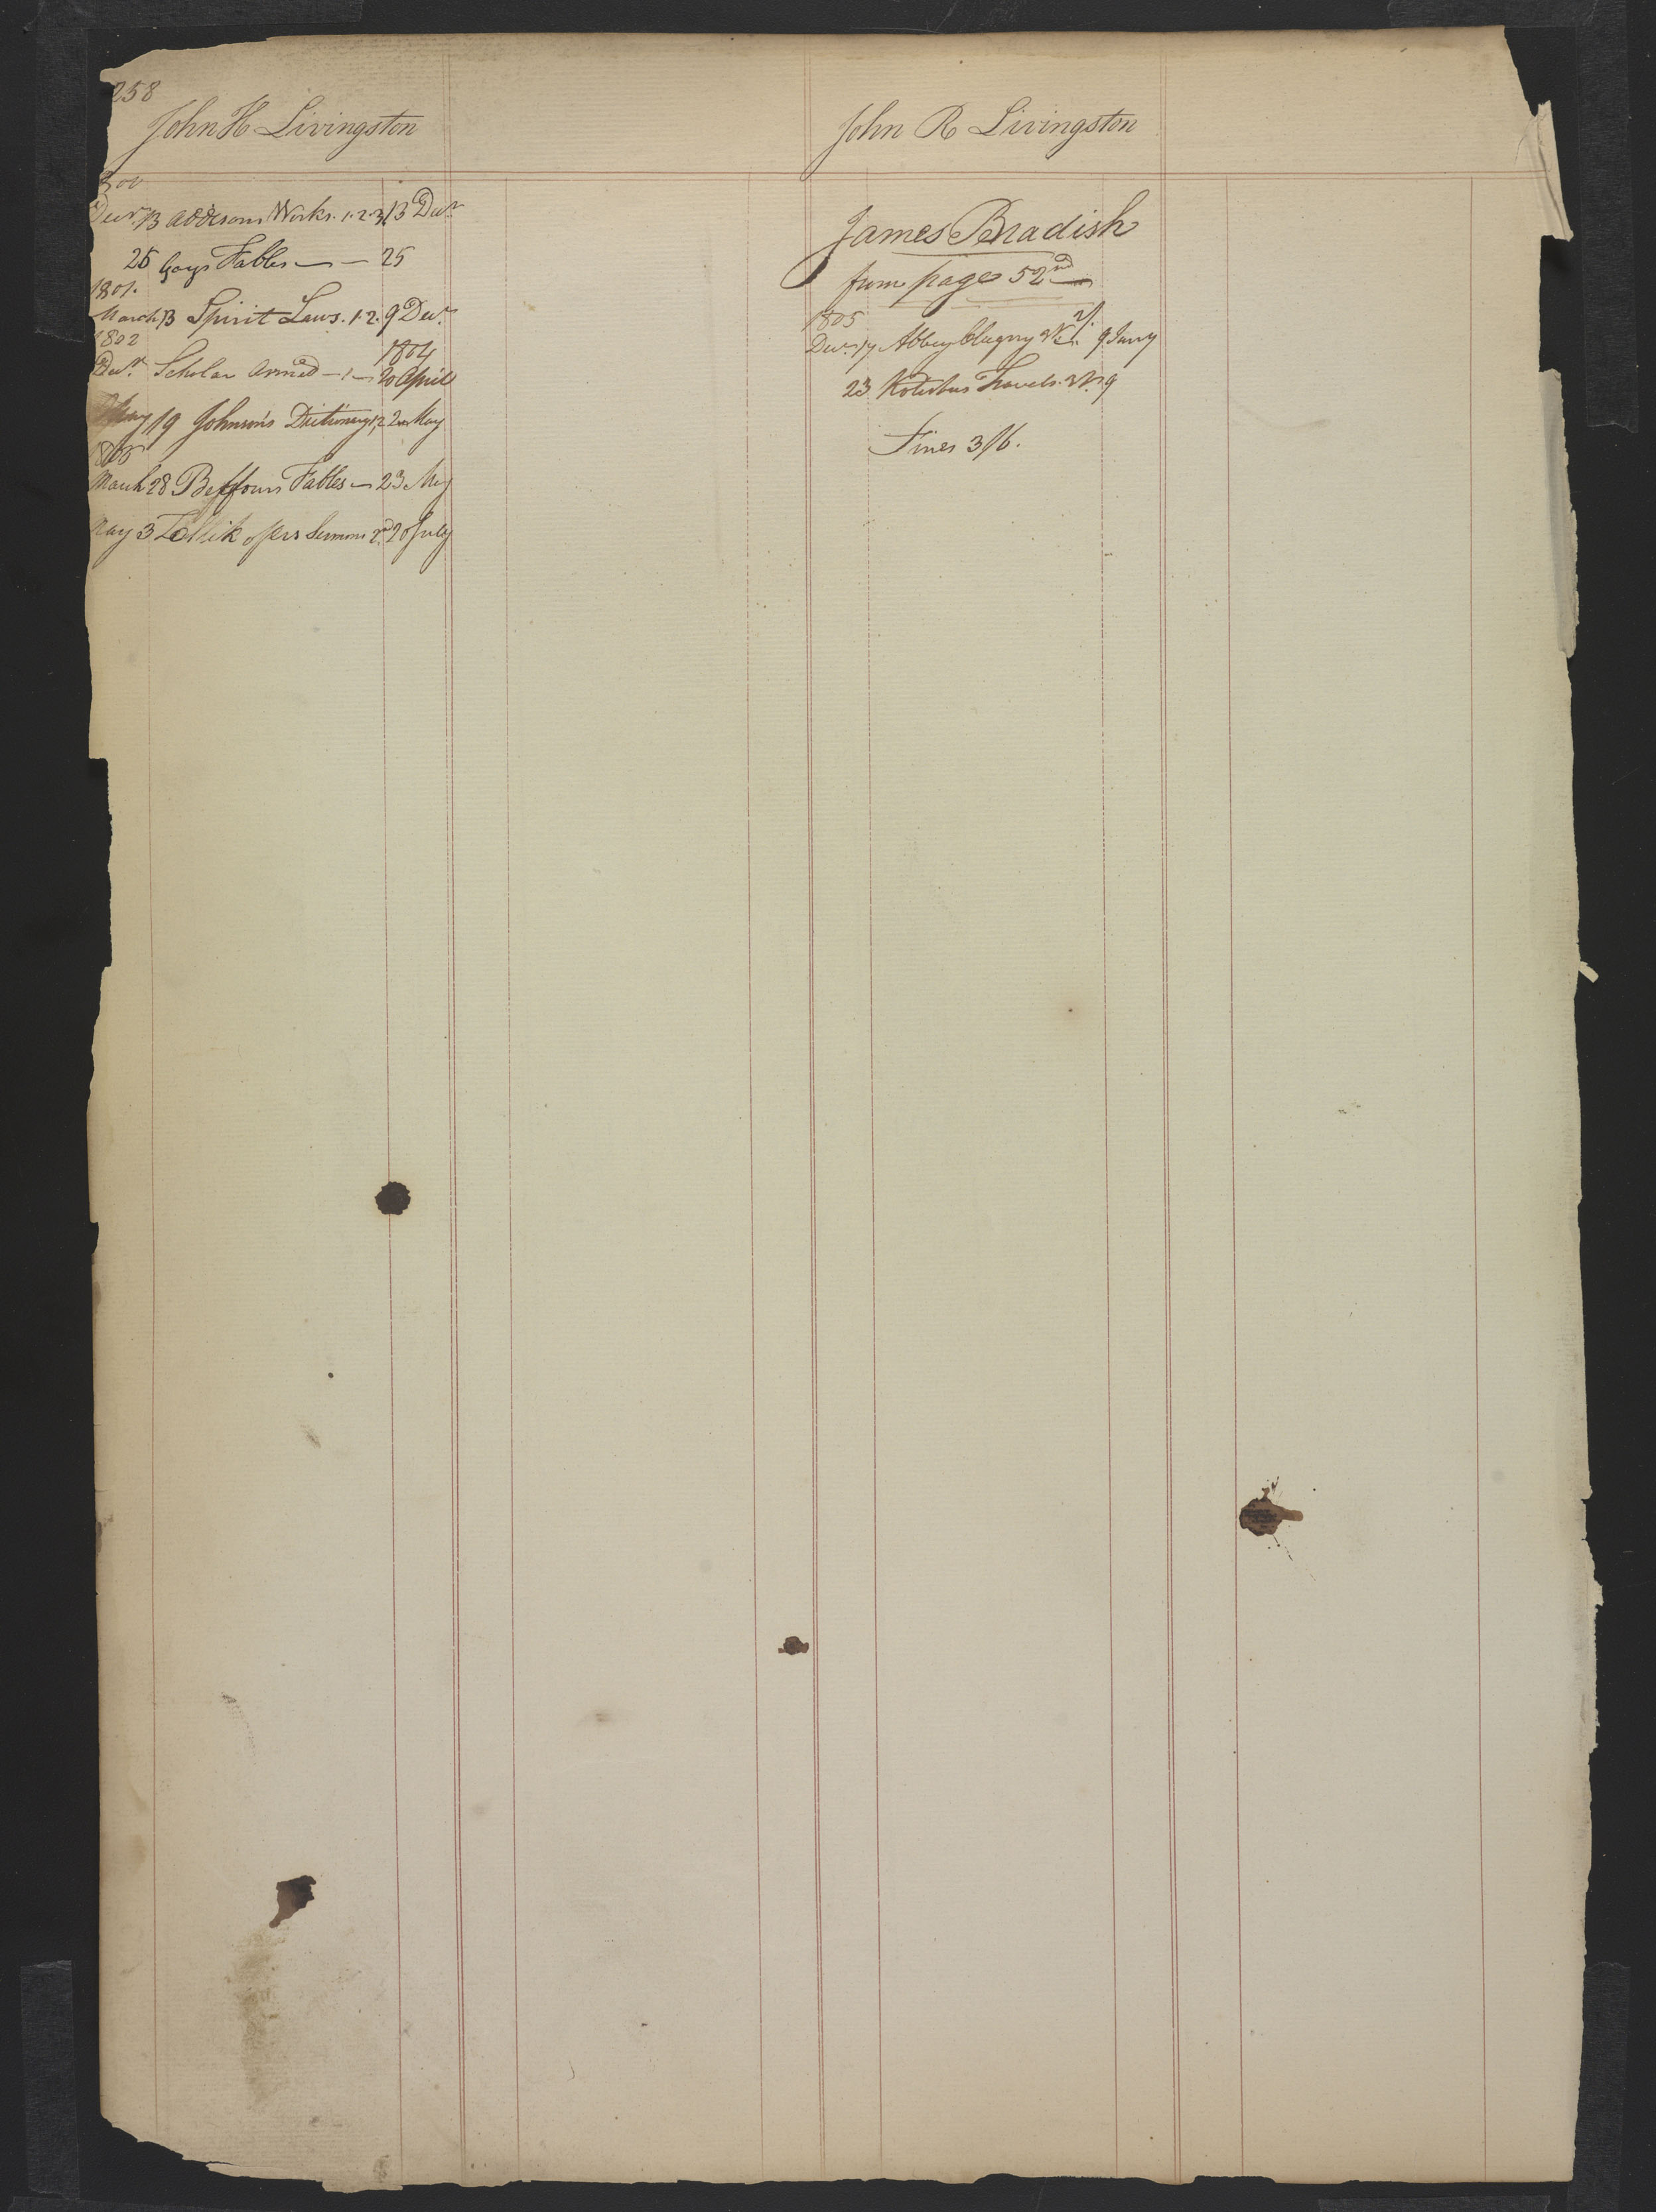 258
John H Livingston
Decr. 13 Addisons Works. 1.2.3 13 Decr
25 Gays Fables — — 25
1801.
March 13 Spirit Laws. 1.2. 9 Decr.
1802
1804
Decr. Scholar Armed — 1 — 20 April
May 19 Johnson's Dictionary 1,2 May
1805
March 28 Fables — 23 May
May 3 Sermons 2d 20 July
John R Livingston
James Bradish
from page 52nd
1805
2/.
Decr. 17 Abbey Clugny 9 Jany
23 Travels 9
Fines 3/6.